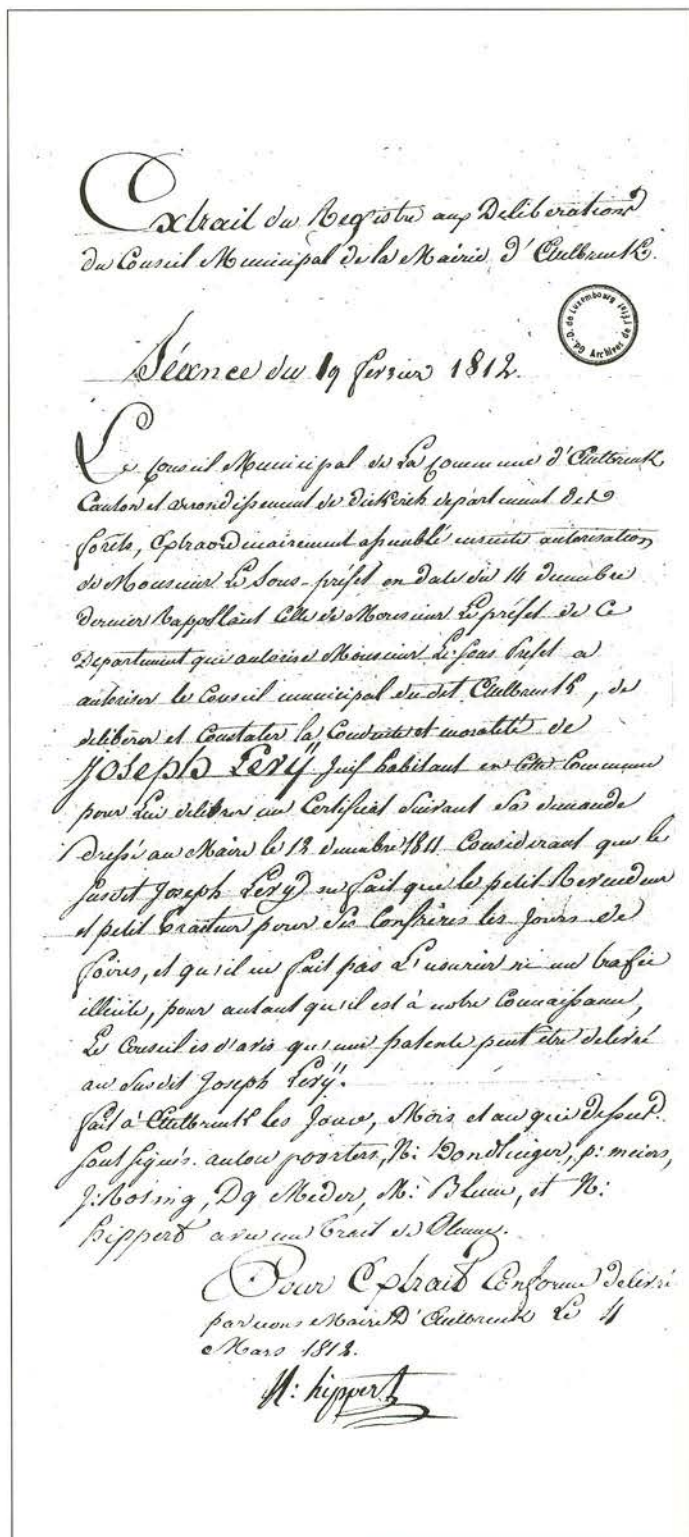 Extrait du Registre aux Deliberations
du Conseil Municipal de la Mairie d'Ettelbruck.
Gd.-D. de Luxembourg Archives de l'Etat
Séance du 19 fevrier 1812.
Le Conseil Municipal de La Commune d'Ettelbruck
Canton et arrondissement de diekirch departement des
forêts, Extraordinairement assemblé ensuite autorisation
de Monsieur Le Sous-préfet en date du 14 decembre
dernier Rappellant Celle de Monsieur Le préfet de Ce
Departement qui autorise Monsieur Le Sous Prefet a
autoriser le Conseil municipal du dit Ettelbruck, de
deliberer et Constater la Conduite et moralité de
Joseph Levÿ Juif habitant en Cette Commune
pour Lui delibrer un Certificat Suivant Sa demande
dressé au Maire le 12 decembre 1811 Considerant que le
Susdit Joseph Levÿ ne fait que le petit Revendeur
et petit Tracteur pour Ses Confrères les Jours de
foires, et qu'il ne fait pas L'usurier ni un trafic
illicite, pour autant qu'il est à notre Connaissance,
Le Conseil es d'avis qu'une patente peut être delivré
au Susdit Joseph Levÿ.
fait à Ettelbruck les Jour, Mois et an que dessus
Sont Signés. poorters, N: Bondlinger, p: meiers,
J: Rosing, Dq Meder, M: Blum, et N:
hippert avec un Trait de Plume.
Pour Extrait Conforme delivré
par nous Maire D'Ettelbruck Le 4
Mars 1812.
N: hippert